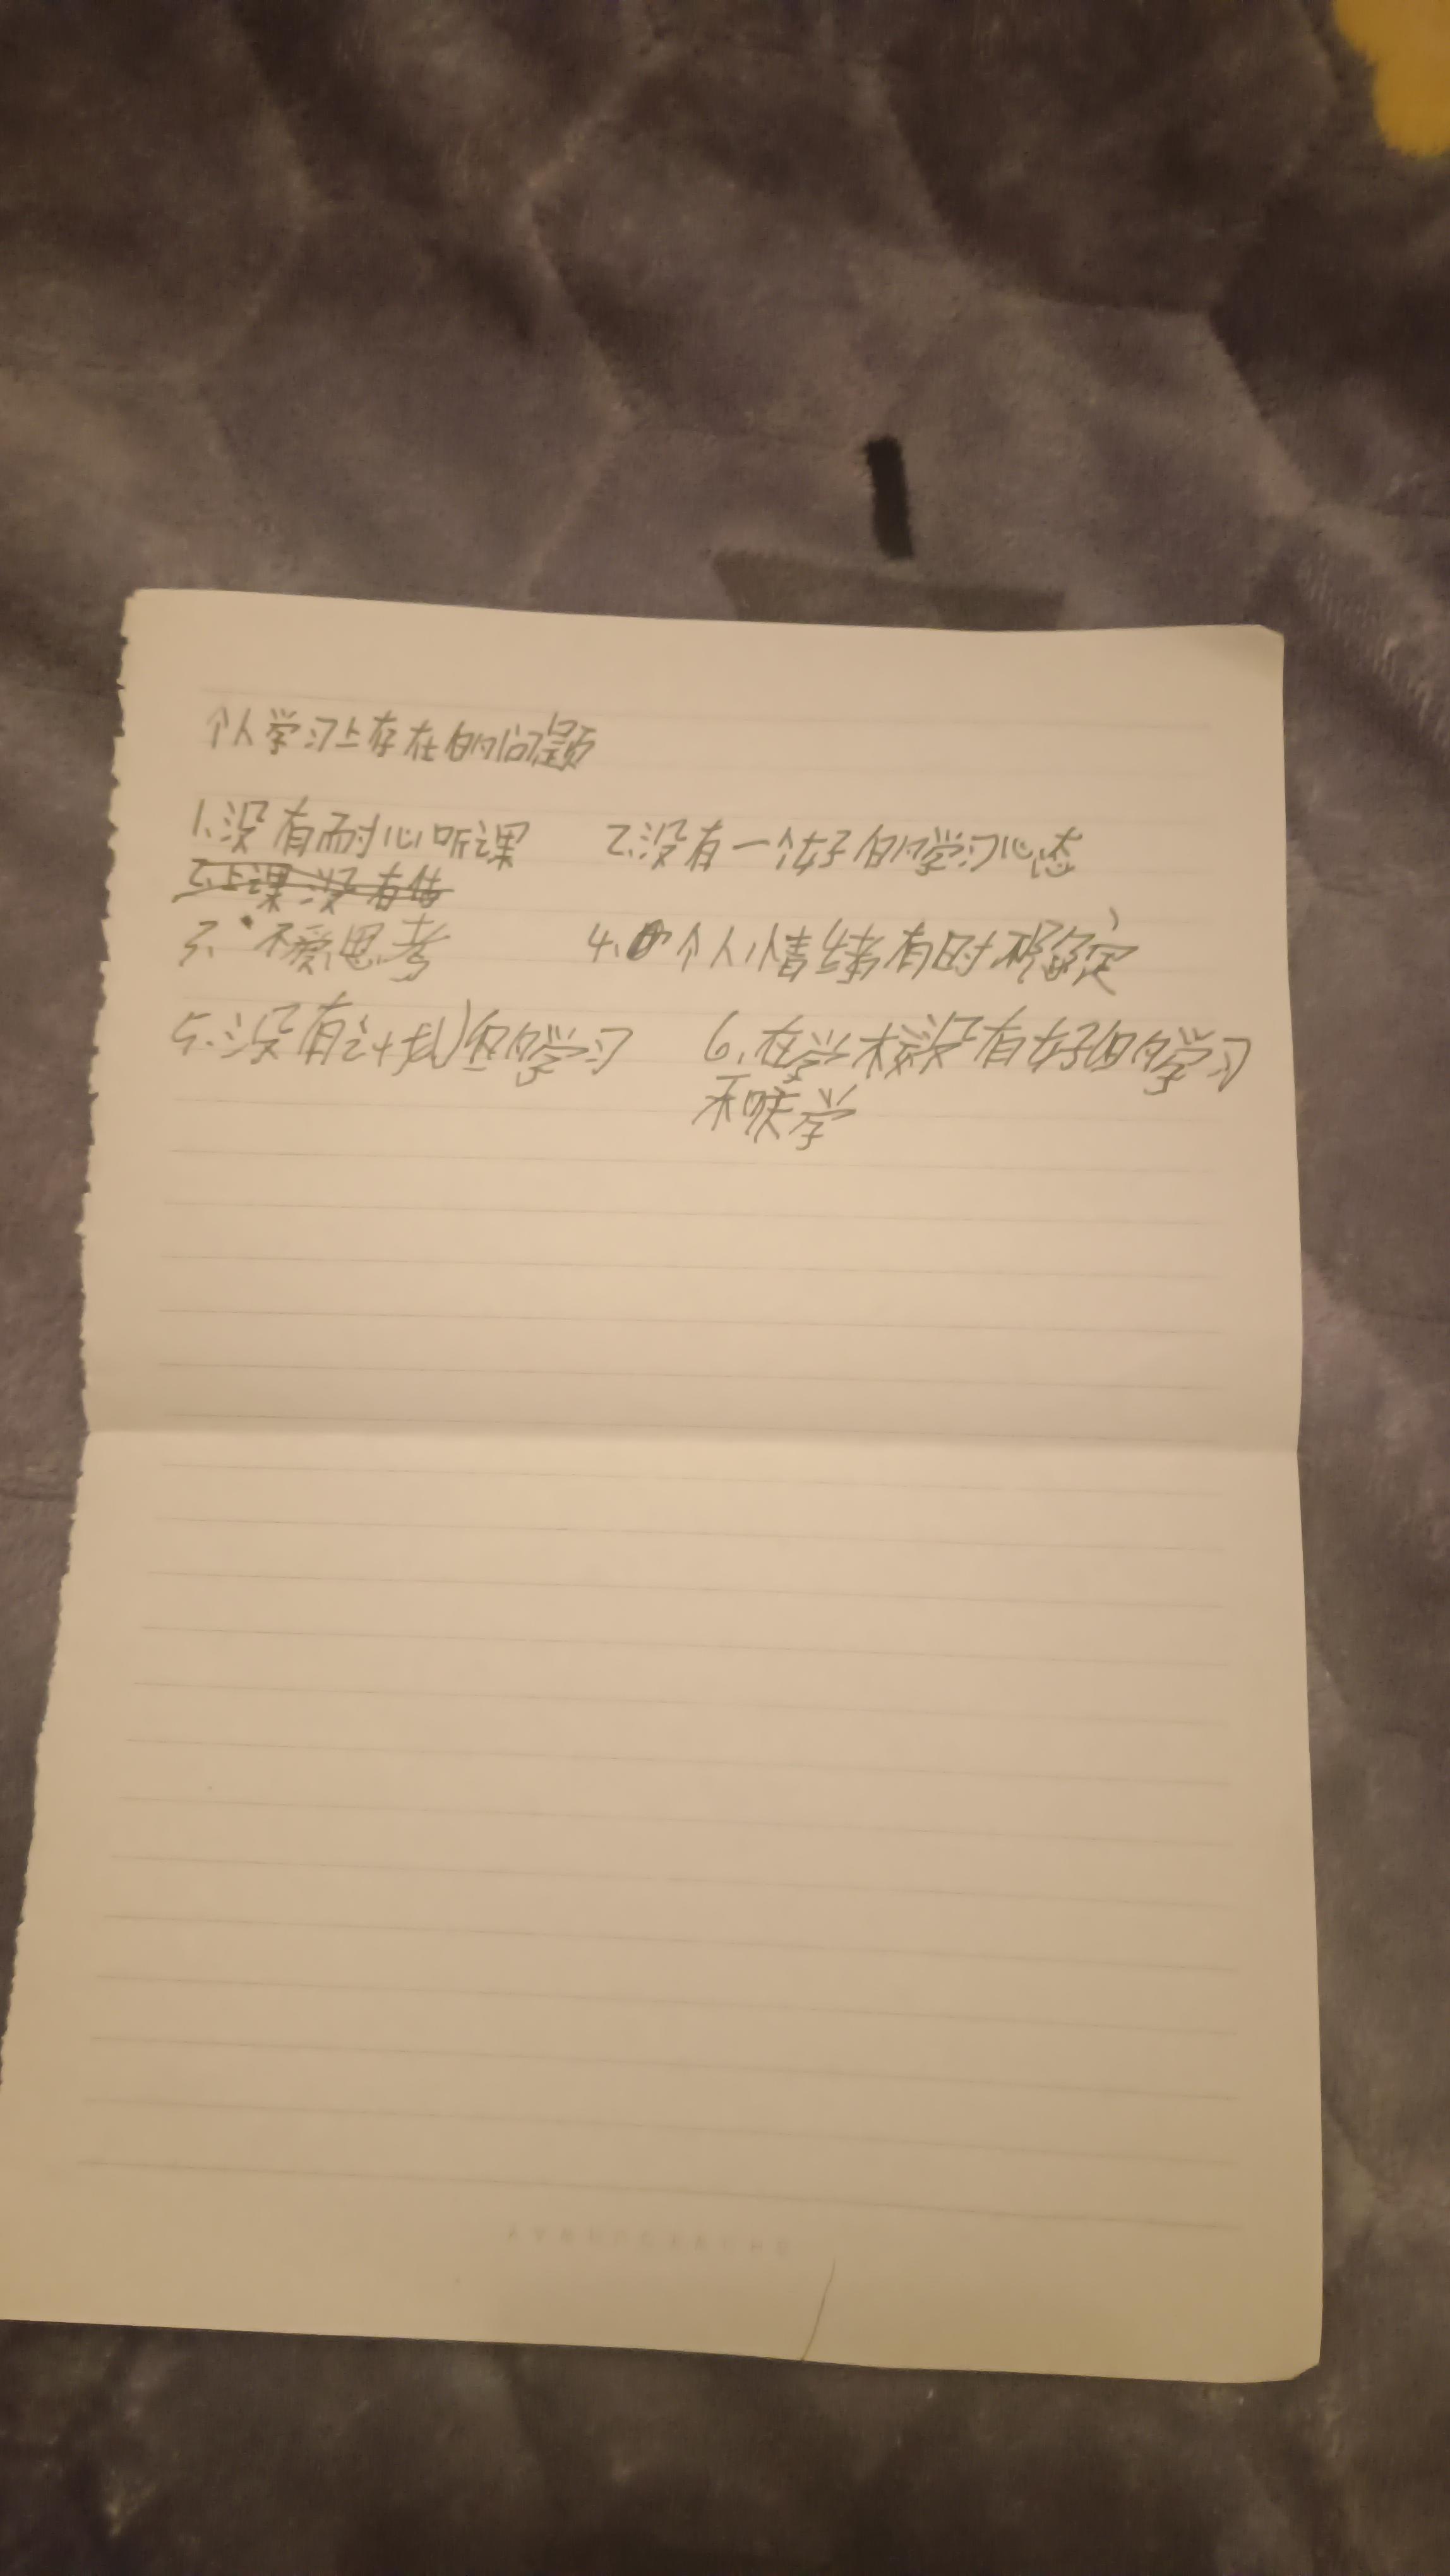 个人学习上存在的问题
1.没有耐心听课 2.没有一个好的学习心态
2.上课没有
3.不爱思考 4.个人情绪有时不稳定
5.没有计划的学习 6.在学校没有好的学习
学